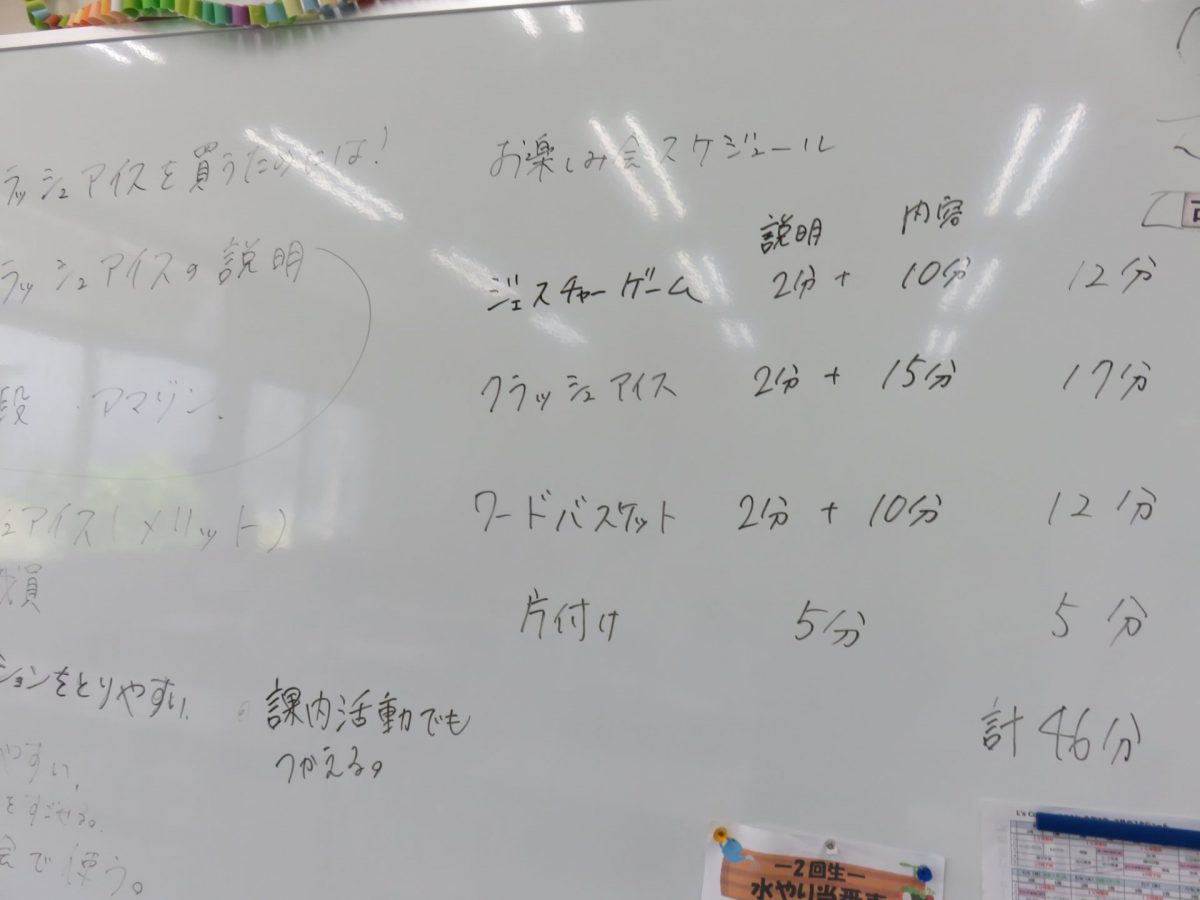 ラッシュアイスを買うためには!
ラッシュアイスの説明
段 ・アマゾン.
ュアイス(メリット)
ションをとりやすい.
やすい,
をすごせる。
会で使う。
課内活動でも
つかえる。
お楽しみ会スケジュール
説明 内容
ジェスチャーゲーム 2分 + 10分 12分
クラッシュアイス 2分 + 15分 17分
ワードバスケット 2分 + 10分 12分
片付け 5分 5分
計 46分
ー2回生ー
水やり当番表